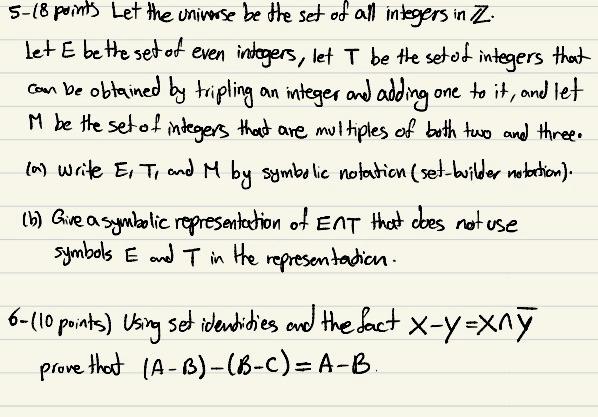 5-(8 points) Let the universe be the set of all integers in ℤ.
Let E be the set of even integers, let T be the set of integers that
can be obtained by tripling an integer and adding one to it, and let
M be the set of integers that are multiples of both two and three.
(a) Write E, T, and M by symbolic notation (set-builder notation).
(b) Give a symbolic representation of E∩T that does not use
symbols E and T in the representation.
6-(10 points) Using set identities and the fact X-Y=X∩Y̅
prove that (A-B)-(B-C)=A-B.